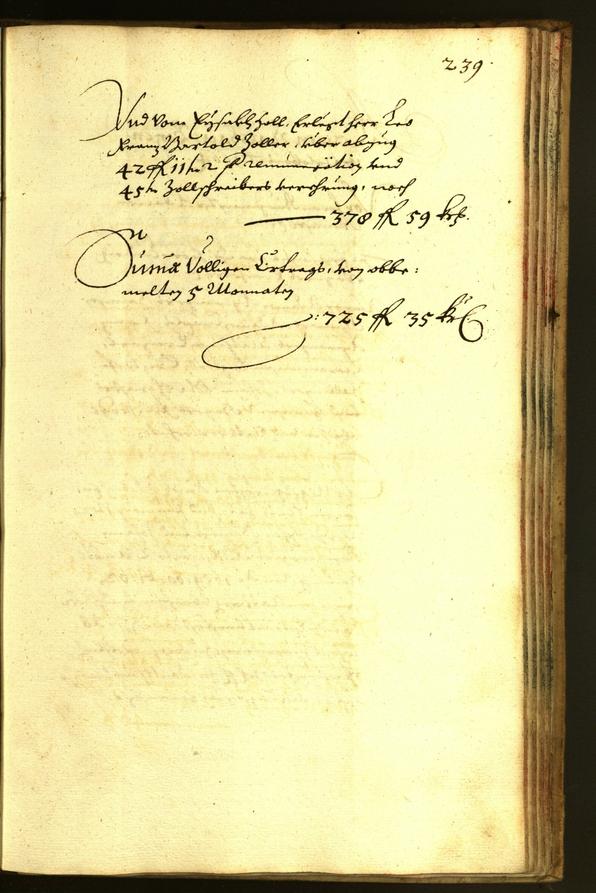 239.
Und vom Eysakhzoll, Erlegt herr Leo
Franz Bartold Zoller, über abzug
42 fl 11 kr 2 Remuneration und
45 kr Zollschreibers verehrung, noch
378 fl 59 kr.
Suma Völligen Ertrags, von obbe:
melten 5 Monnaten
: 725 fl 35 kr